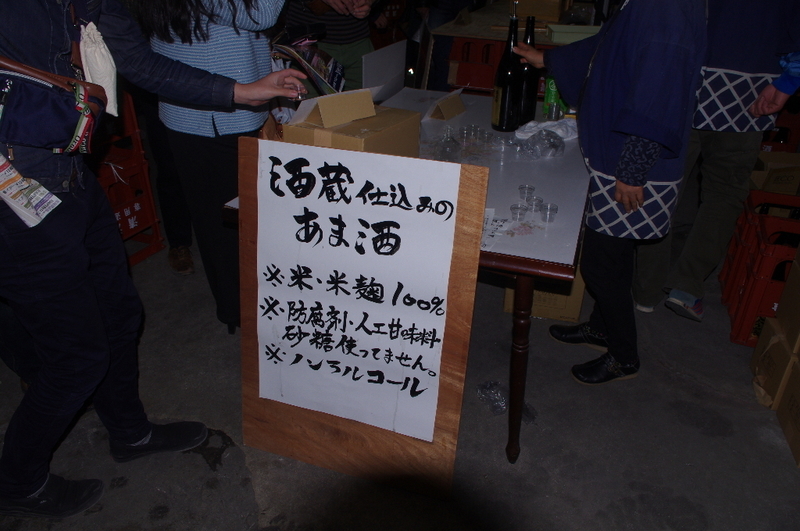 酒蔵仕込みの
あま酒
※・米・米麹100%
※・防腐剤・人工甘味料
砂糖使ってません。
※ノンアルコール